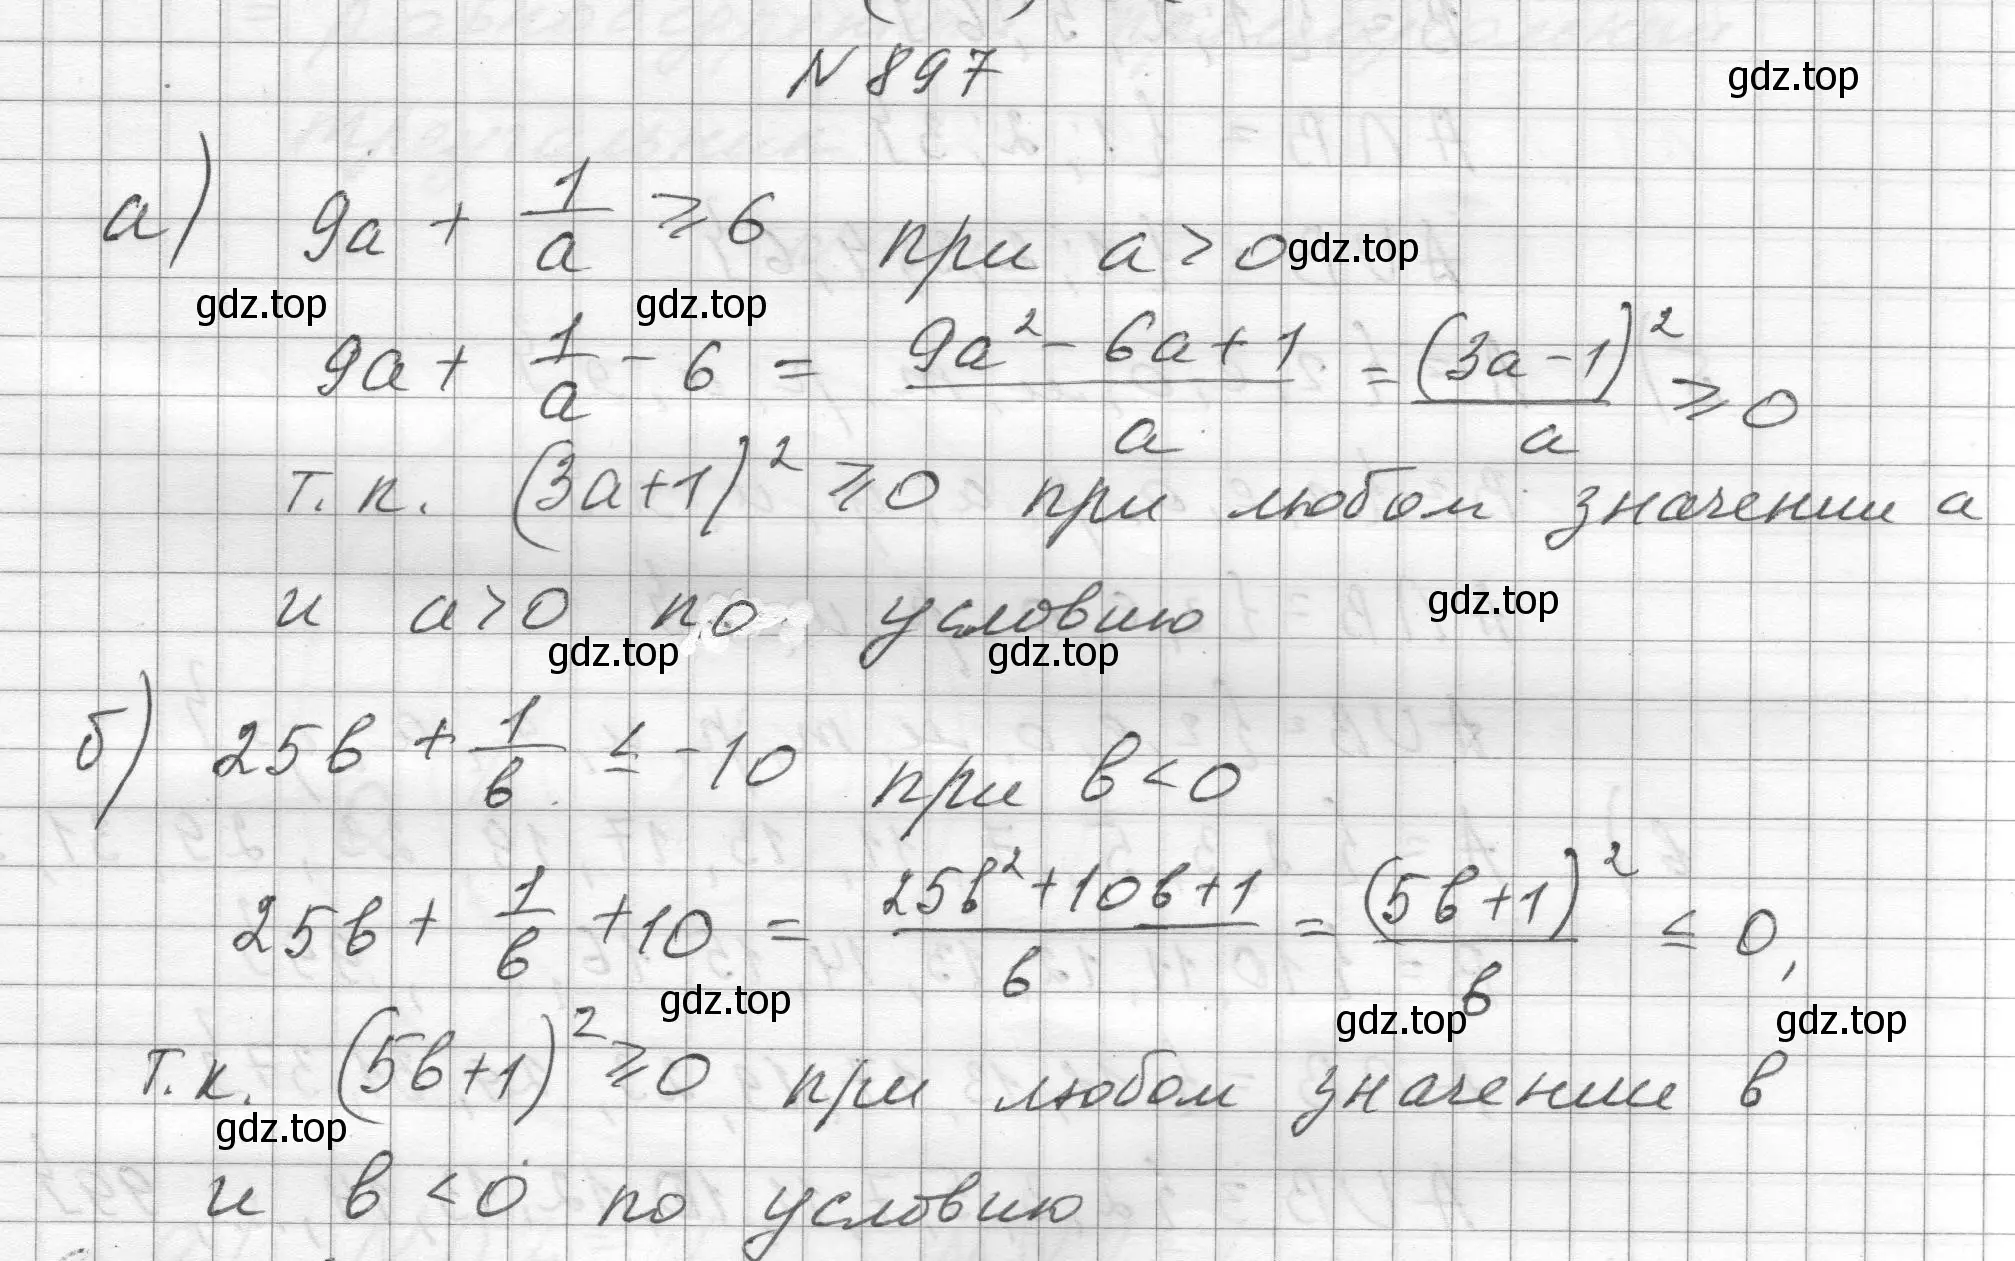 N 897
gdz.top
а) 9a + 1/a ⩾ 6 при a > 0
gdz.top
gdz.top gdz.top
9a + 1/a - 6 = (9a² - 6a + 1)/a = (3a - 1)²/a ⩾ 0
т.к. (3a+1)² ⩾ 0 при любом значении a
и a > 0 по условию
gdz.top
gdz.top gdz.top
б) 25в + 1/в ≤ -10 при в < 0
25в + 1/в + 10 = (25в² + 10в + 1)/в = (5в + 1)²/в ≤ 0,
gdz.top gdz.top gdz.top
т.к. (5в+1)² ⩾ 0 при любом значении в
gdz.top
и в < 0 по условию